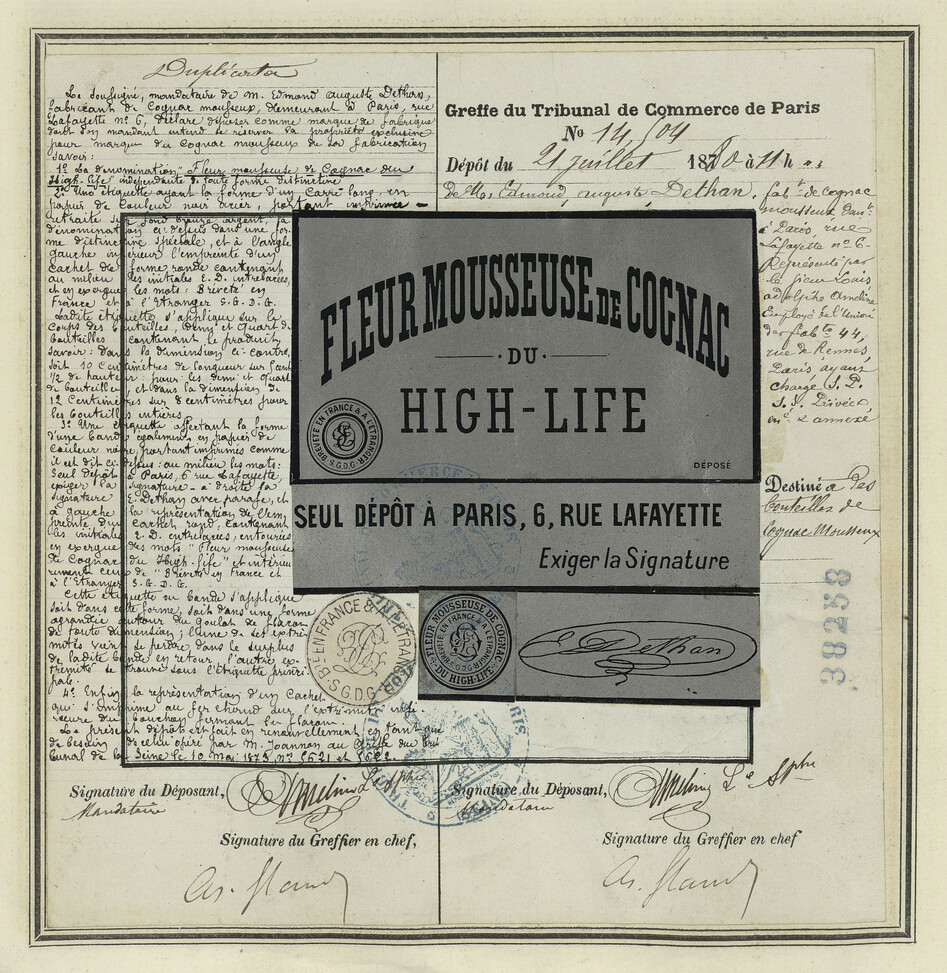 Duplicata
Le soussigné, mandataire de M. Edmond Auguste Dethan,
fabricant de Cognac mousseux, demeurant à Paris, rue
Lafayette nº 6, déclare déposer comme marque de fabrique
dont son mandant entend se réserver la propriété exclusive
pour marque du Cognac mousseux de sa fabrication
savoir:
1º La dénomination "Fleur mousseuse de Cognac du
High-life" indépendante de toute forme distinctive
2º Une étiquette ayant la forme d'un Carré long, en
papier de couleur noir acier, portant imprimée
retraite sur fond bronze argent, la
dénomination ci-dessus dans une for-
me distinctive spéciale, et à l'angle
gauche inférieur l'empreinte d'un
cachet de forme ronde contenant
au milieu les initiales E. D. entrelacées,
et en exergue les mots: Breveté en
France et à l'Etranger S. G. D. G.
Ladite étiquette s'applique sur le
corps des bouteilles, demi et quart de
bouteilles contenant le produit,
savoir: dans la dimension ci-contre,
soit 10 Centimètres de longueur sur
1/2 de hauteur: pour les demi et quart
de bouteille, et dans la dimension de
12 Centimètres sur 8 centimètres pour
les bouteilles entières.
3º Une étiquette affectant la forme
d'une bande également en papier de
couleur noire, portant imprimés comme
il est dit ci-dessus: au milieu les mots:
Seul dépôt à Paris, 6 rue Lafayette,
exiger la signature - à droite la
signature E. Dethan avec parafe, et
à gauche la représentation de l'em-
preinte du cachet rond, contenant
les initiales E. D. entrelacées, entourées
en exergue des mots "Fleur mousseuse
de Cognac du High-life" et intérieu-
rement ceux de "Breveté en France et
à l'Etranger S. G. D. G.
Cette étiquette ou bande s'applique
soit dans cette forme, soit dans une forme
agrandie autour du goulot de flacon
de toute dimension; l'une de ses extré-
mités vient se perdre dans le surplus
de ladite bande en retour, l'autre ex-
trémité se trouve sous l'étiquette princi-
pale.
4º Enfin la représentation d'un Cachet
qui s'imprime au fer chaud sur l'extrémité infé-
rieure du bouchon fermant le flacon.
Le présent dépôt est fait en renouvellement en tant que
de besoin de celui opéré par M. Joannon au Greffe du Tri-
bunal de la Seine le 10 mai 1873 nº 5621 et 5622.
Signature du Déposant,
Mandataire
Signature du Greffier en chef,
Greffe du Tribunal de Commerce de Paris
Nº 14,504
Dépôt du 21 juillet 1880 à 11 h
de M. Edmond, auguste, Dethan, fabt de Cognac
mousseux, demt
à Paris, rue
Lafayette nº 6-
Représenté par
le sieur Louis
adolphe Ameline
Employé de l'Union
des fabts 44,
rue de Rennes,
Paris, ayant
charge S. P.
annexé
FLEUR MOUSSEUSE DE COGNAC
DU
HIGH-LIFE
BREVETÉ EN FRANCE & A L'ETRANGER
S.G.D.G.
DÉPOSÉ
SEUL DÉPÔT À PARIS, 6, RUE LAFAYETTE
Exiger la Signature
Bté EN FRANCE & A L'ETRANGER
S.G.D.G.
FLEUR MOUSSEUSE DE COGNAC
DU HIGH-LIFE
BREVETÉ EN FRANCE & A L'ETRANGER
S.G.D.G.
E. Dethan
Destiné à des
bouteilles de
Cognac Mousseux
38258
Signature du Déposant,
Mandataire
Signature du Greffier en chef